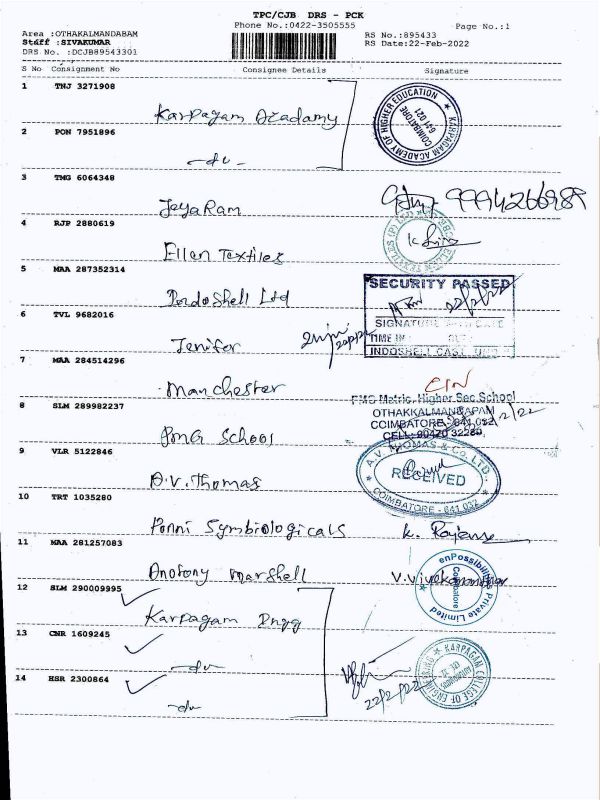 TPC/CJB DRS - PCK
Phone No.:0422-3505555
Page No.:1
Area :OTHAKALMANDABAM
RS No.:895433
Staff :SIVAKUMAR
RS Date:22-Feb-2022
DRS No. :DCJB89543301
S No Consignment No Consignee Details Signature
1 TNJ 3271908
Karpagam Academy
KARPAGAM ACADEMY OF HIGHER EDUCATION
COIMBATORE
641 021
2 PON 7951896
-do-
3 TMG 6064348
JeyaRam
9994266989
4 RJP 2880619
Ellen Textiles
5 MAA 287352314
IndoShell Ltd
SECURITY PASSED
22/2/22
SIGNATURE WITH DATE
TIME IN:
INDOSHELL CAST
6 TVL 9682016
Jenifer
7 MAA 284514296
Manchester
8 SLM 289982237
PMG School
PMG Matric. Higher Sec.School
OTHAKKALMANDAPAM
COIMBATORE - 641 032
9 VLR 5122846
A.V. Thomas
A.V. THOMAS & CO. LTD.,
RECEIVED
COIMBATORE - 641 032
10 TRT 1035280
Ponni Symbiologicals
11 MAA 281257083
Anotony Marshell
enPossibilities Private Limited
Coimbatore
12 SLM 290009995
Karpagam Engg
13 CNR 1609245
-do-
KARPAGAM COLLEGE OF ENGINEERING
14 HSR 2300864
-do-
22/2/22